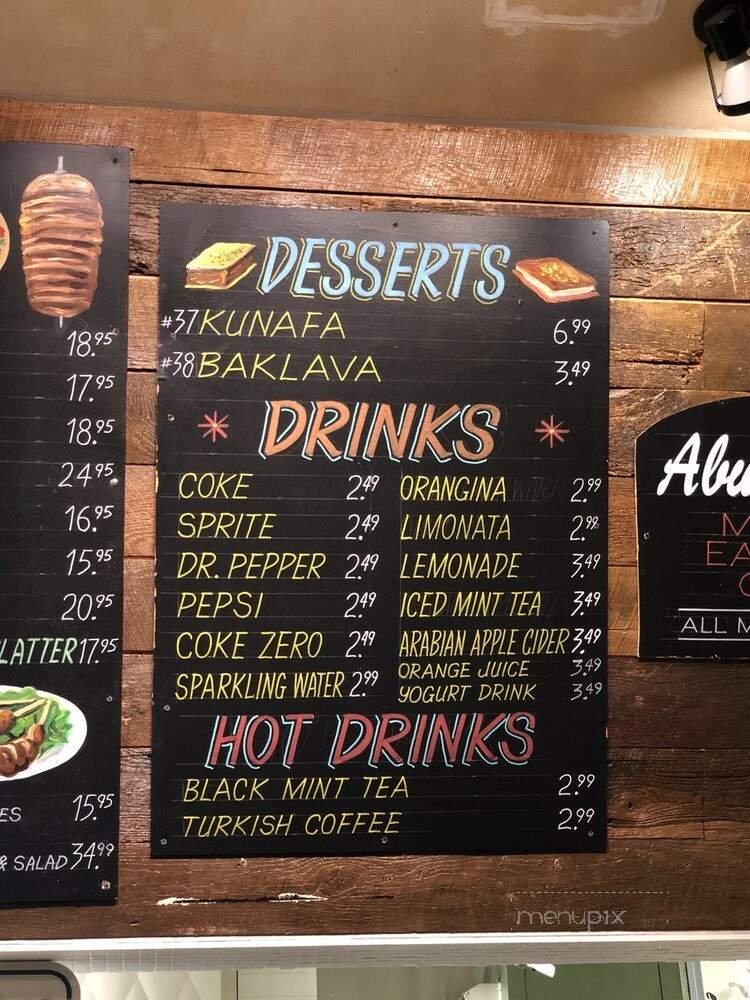 18.95
17.95
18.95
24.95
16.95
15.95
20.95
LATTER 17.95
ES 15.95
& SALAD 34.99
DESSERTS
#37 KUNAFA 6.99
#38 BAKLAVA 3.49
DRINKS
COKE 2.49
SPRITE 2.49
DR. PEPPER 2.49
PEPSI 2.49
COKE ZERO 2.49
SPARKLING WATER 2.99
ORANGINA 2.99
LIMONATA 2.99
LEMONADE 3.49
ICED MINT TEA 3.49
ARABIAN APPLE CIDER 3.49
ORANGE JUICE 3.49
YOGURT DRINK 3.49
HOT DRINKS
BLACK MINT TEA 2.99
TURKISH COFFEE 2.99
Abu
M
EA
ALL M
menupix